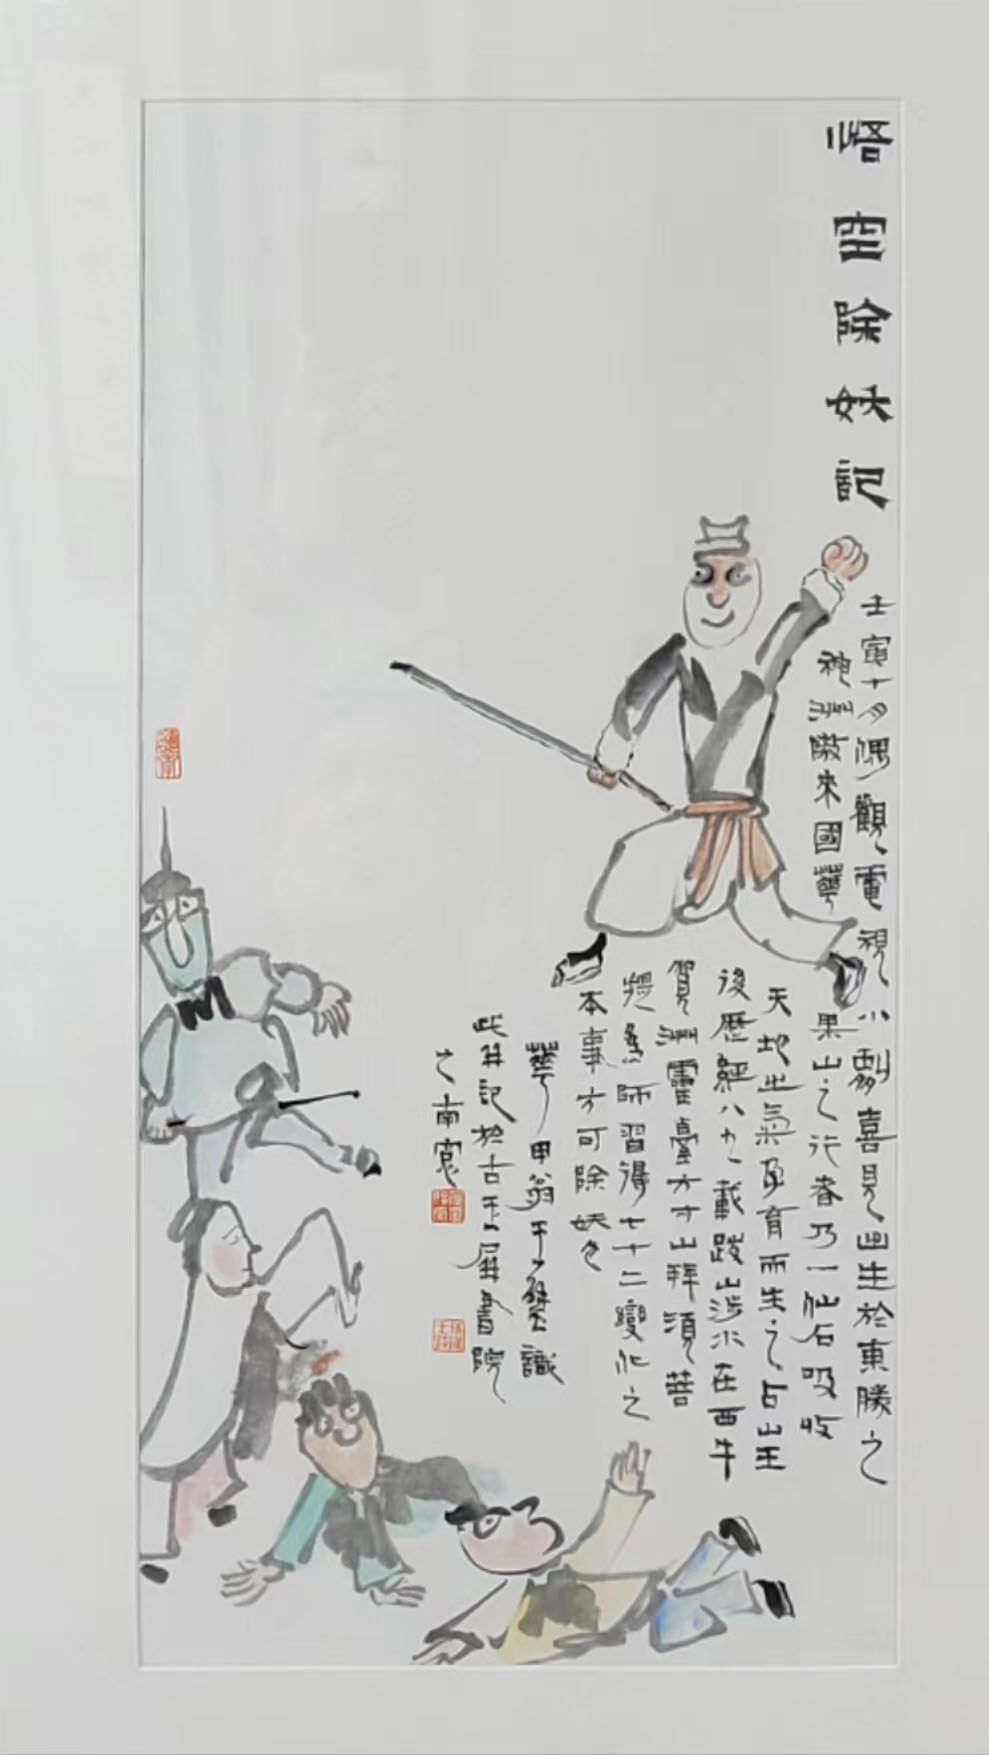 悟空除妖記
壬寅十月偶觀電視小劇喜見出生於東勝之
神洲傲來國華果山之行者乃一仙石吸收
天地之氣孕育而生之占山王
後歷經八九載跋山涉水在西牛
賀洲靈臺方寸山拜須菩
提爲師習得七十二變化之
本事方可除妖也
華甲翁于 識
此并記於古玉屏書院
之南窗